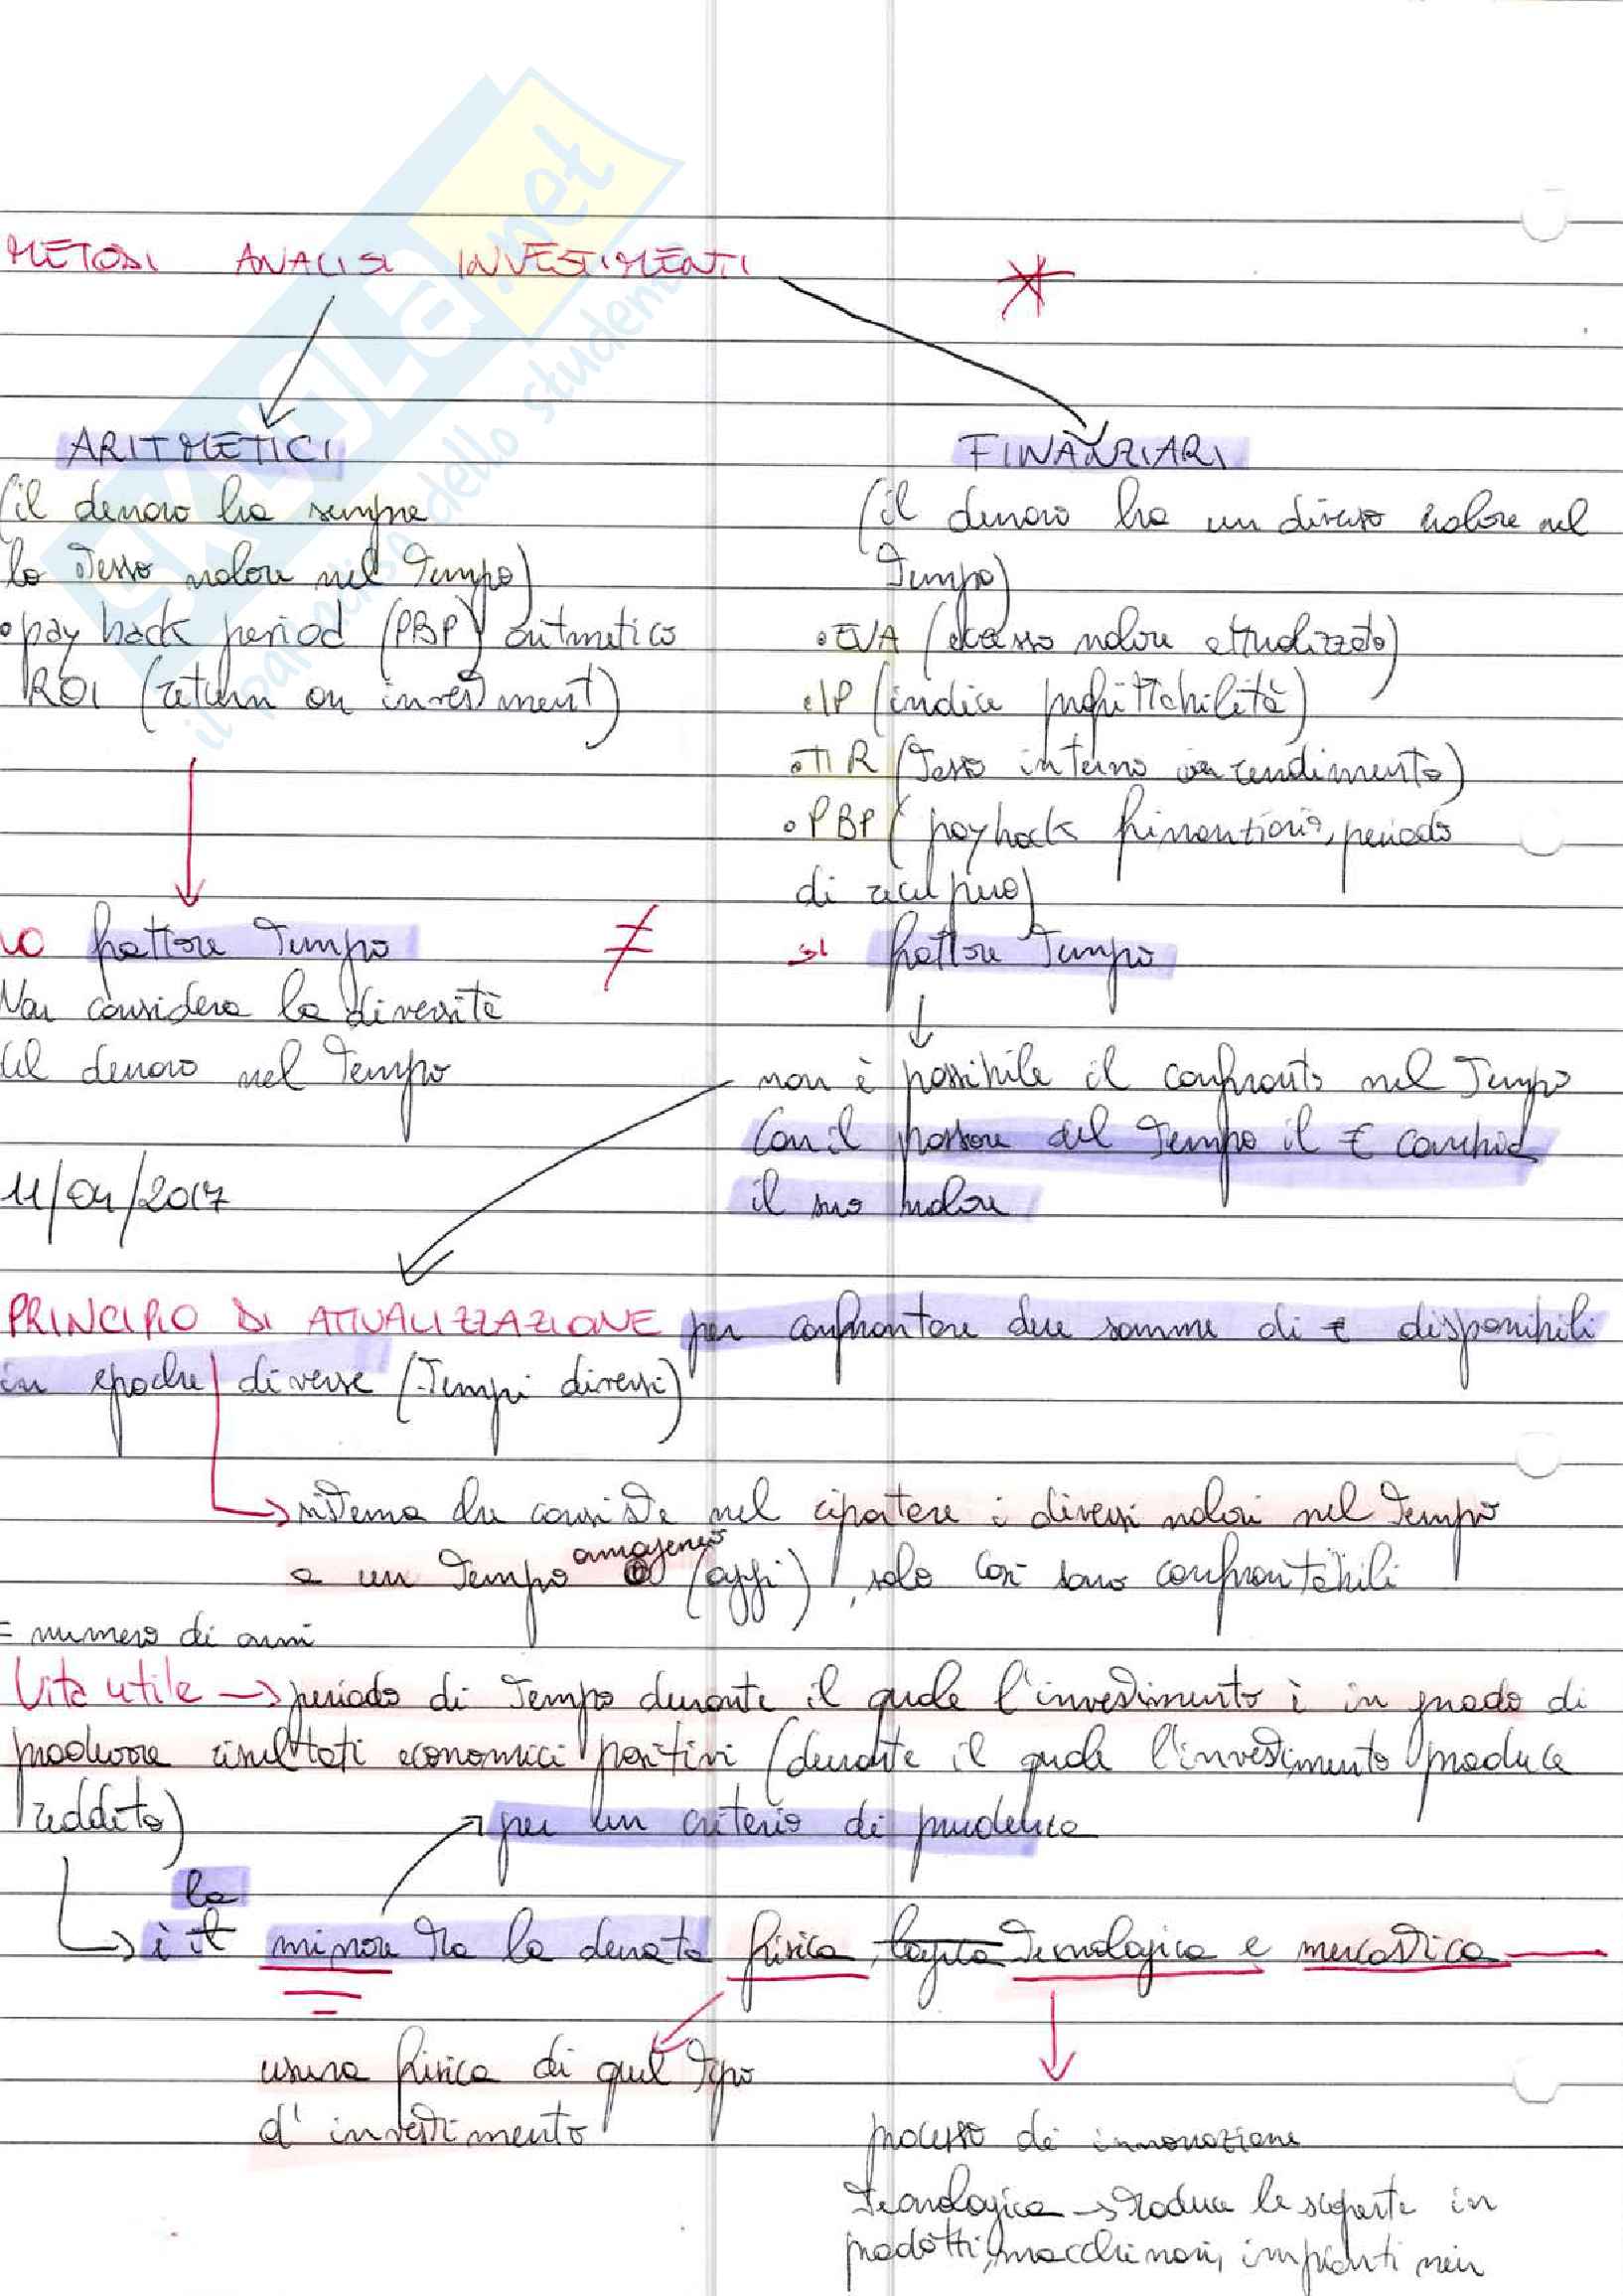 SKUOLA.net
il paradiso dello studente
METODI ANALISI INVESTIMENTI
ARITMETICI
(il denaro ha sempre
lo stesso valore nel tempo)
• pay back period (PBP) aritmetico
ROI (return on investment)
NO fattore tempo
Non considera la diversità
del denaro nel tempo
≠
FINANZIARI
(il denaro ha un diverso valore nel
tempo)
• EVA (eccesso valore attualizzato)
• IP (indice profittabilità)
• TIR (tasso interno rendimento)
• PBP (payback finanziario, periodo
di recupero)
SI fattore tempo
non è possibile il confronto nel tempo
Con il passare del tempo il € cambia
il suo valore
11/04/2017
PRINCIPIO DI ATTUALIZZAZIONE per confrontare due somme di € disponibili
in epoche diverse (tempi diversi)
sistema che consiste nel riportare i diversi valori nel tempo
a un tempo omogeneo (oggi), solo così sono confrontabili
= numero di anni
Vita utile → periodo di tempo durante il quale l'investimento è in grado di
produrre risultati economici positivi (durante il quale l'investimento produce
reddito)
per un criterio di prudenza
è la minore tra la durata fisica, logica tecnologica e mercatistica
usura fisica di quel tipo
d'investimento
processo di innovazione
tecnologica → traduce le scoperte in
prodotti, macchinari, impianti